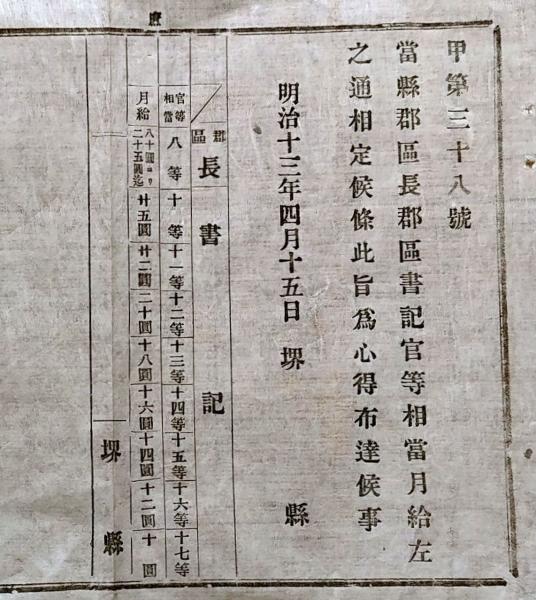 甲第三十八號
當縣郡區長郡區書記官等相當月給左
之通相定候條此旨爲心得布達候事
明治十三年四月十五日 堺 縣
郡區長 書 記
官等相當 八等 十等 十一等 十二等 十三等 十四等 十五等 十六等 十七等
月給 八十圓ヨリ二十五圓迄 廿五圓 廿二圓 二十圓 十八圓 十六圓 十四圓 十二圓 十圓
堺 縣